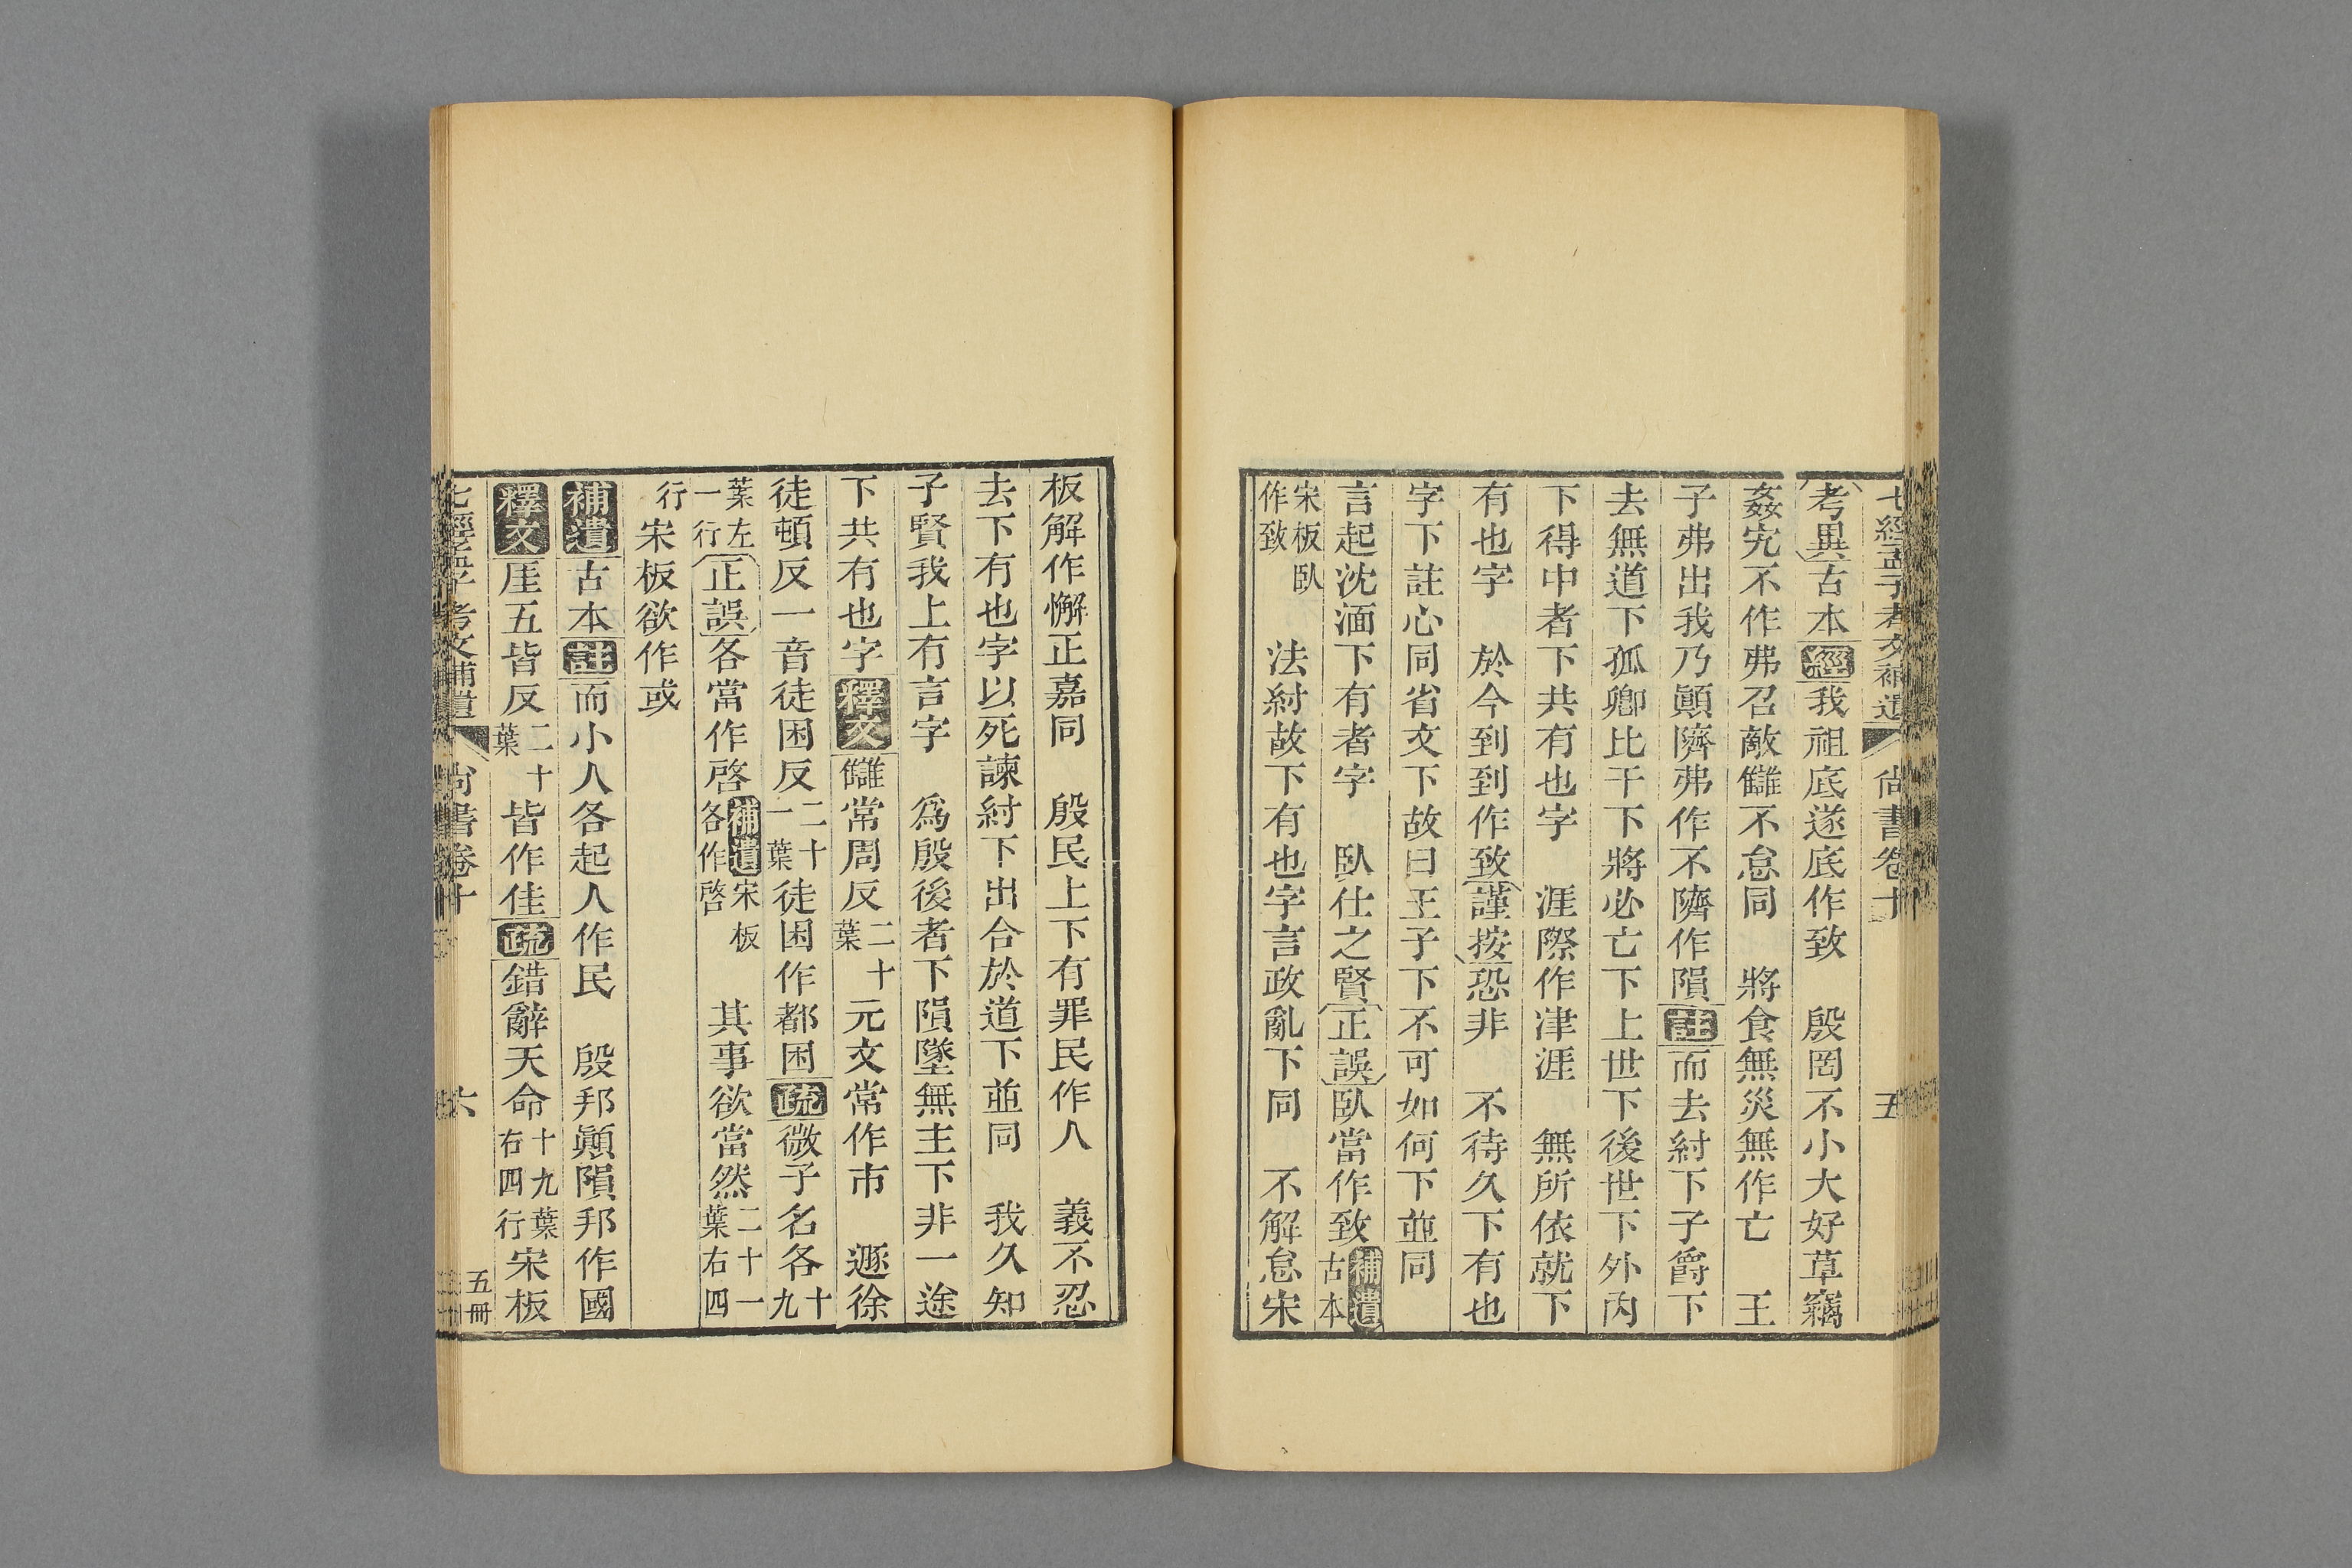 七經孟子考文補遺 尚書卷十 五
考異古本經我祖底遂底作致 殷罔不小大好草竊
姦宄不作弗召敵讎不怠同 將食無災無作亡 王
子弗出我乃顚隮弗作不隮作隕註而去紂下子爵下
去無道下孤卿比干下將必亡下上世下後世下外內
下得中者下共有也字 涯際作津涯 無所依就下
有也字 於今到到作致謹按恐非 不待久下有也
字下註心同省文下故曰王子下不可如何下並同
言起沈湎下有者字 臥仕之賢正誤臥當作致補遺古本
宋板臥作致 法紂故下有也字言政亂下同 不解怠宋
板解作懈正嘉同 殷民上下有罪民作人 義不忍
去下有也字以死諫紂下出合於道下並同 我久知
子賢我上有言字 爲殷後者下隕墜無主下非一途
下共有也字釋文讎常周反二十葉元文常作市 遯徐
徒頓反一音徒困反二十一葉徒困作都困疏微子名各十九
葉左一行正誤各當作啓補遺宋板各作啓 其事欲當然二十一葉右四
行宋板欲作或
補遺古本註而小人各起人作民 殷邦顚隕邦作國
釋文厓五皆反二十葉皆作佳疏錯辭天命十九葉右四行宋板
七經孟子考文補遺 尚書卷十 六 五冊